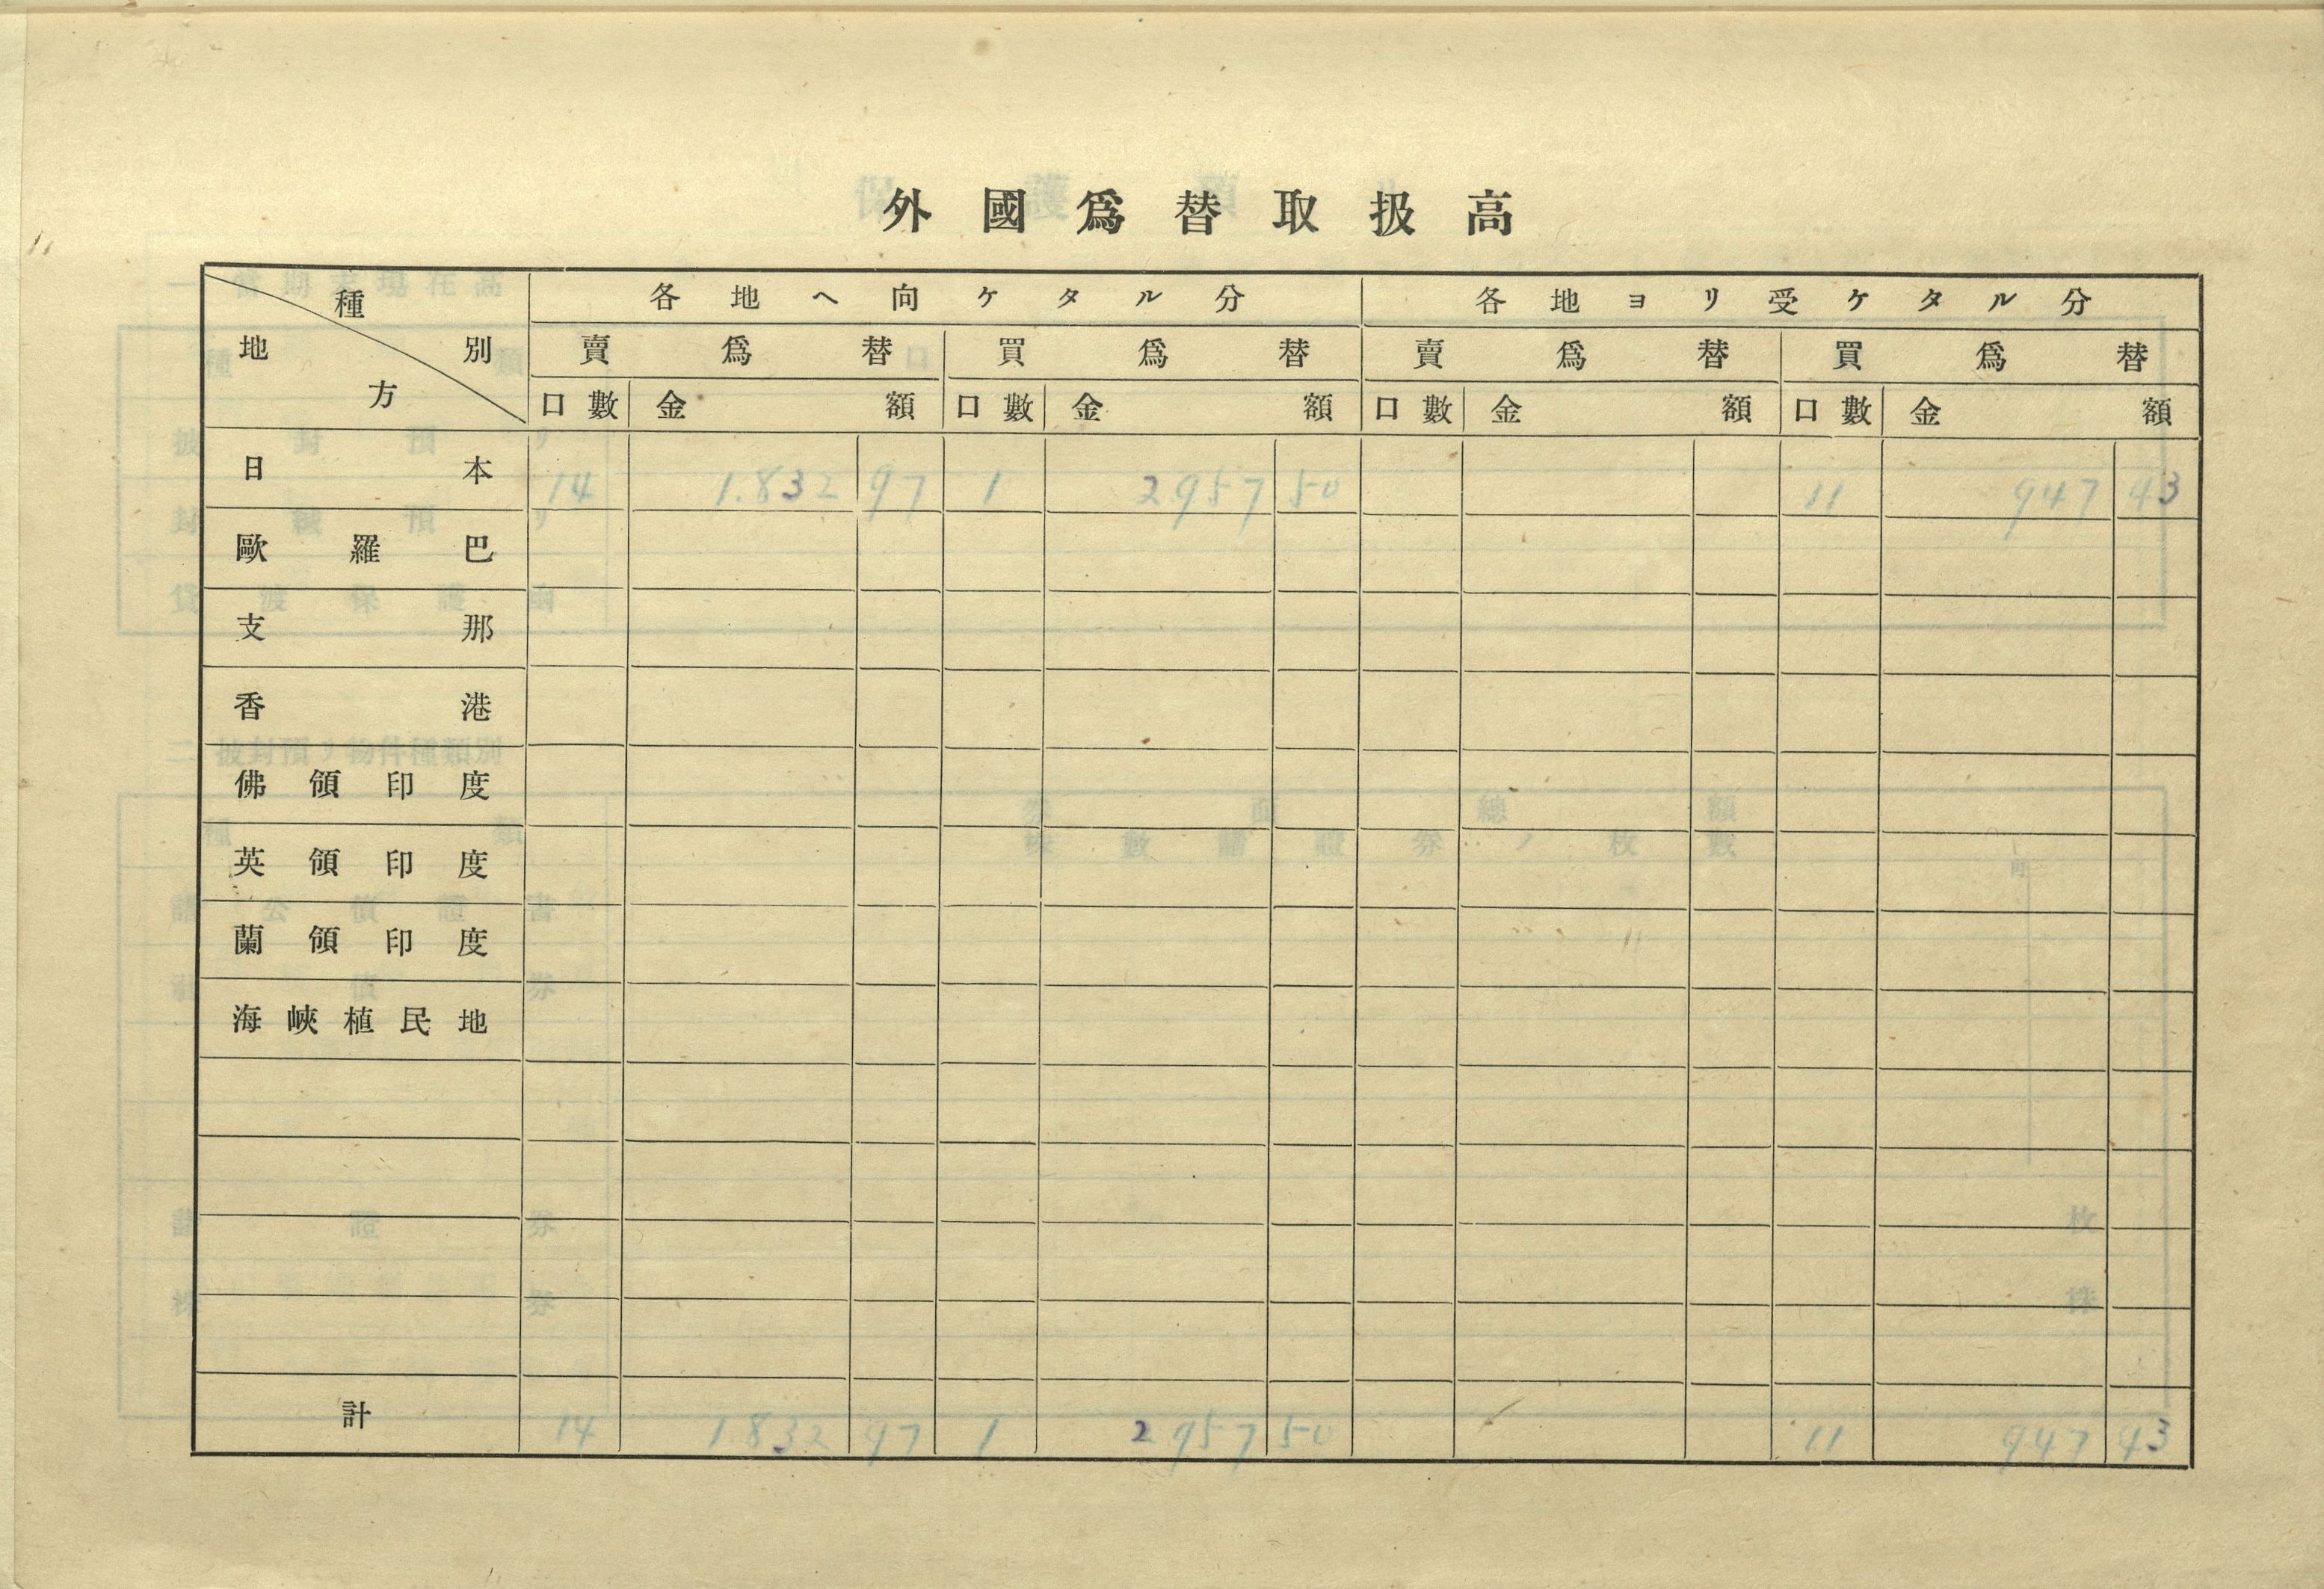 外國爲替取扱高
種別 各地ヘ向ケタル分 各地ヨリ受ケタル分
地方 賣爲替 買爲替 賣爲替 買爲替
口數 金額 口數 金額 口數 金額 口數 金額
日本 14 1.832 97 1 2957 50 11 947 43
歐羅巴
支那
香港
佛領印度
英領印度
蘭領印度
海峽植民地
計 14 1832 97 1 2957 50 11 947 43